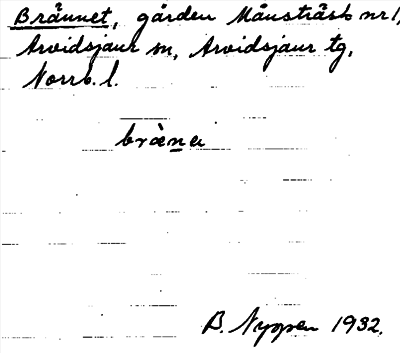 Brännet, gården Månsträsk nr 1,
Arvidsjaur sn, Arvidsjaur tg,
Norrb. l.
bràna
B. Nyppen 1932.